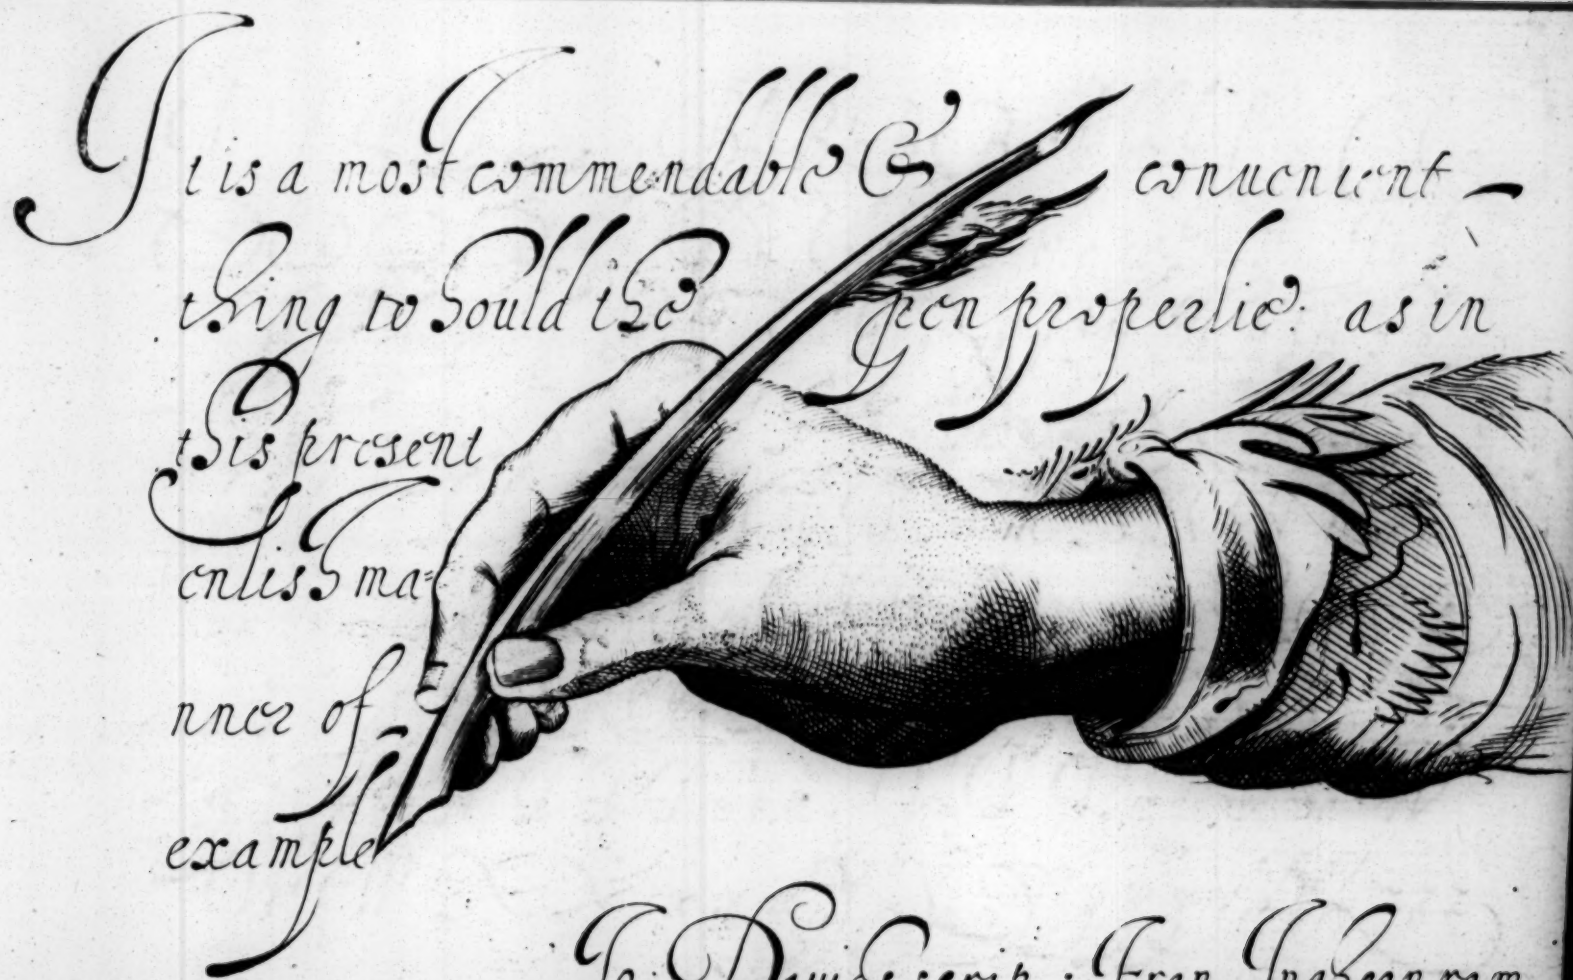 It is a most commendable & conuenient
thing to hould the pen properlie: as in
this present
enlish ma=
nner of
example
Io: Davies scrip: Fran